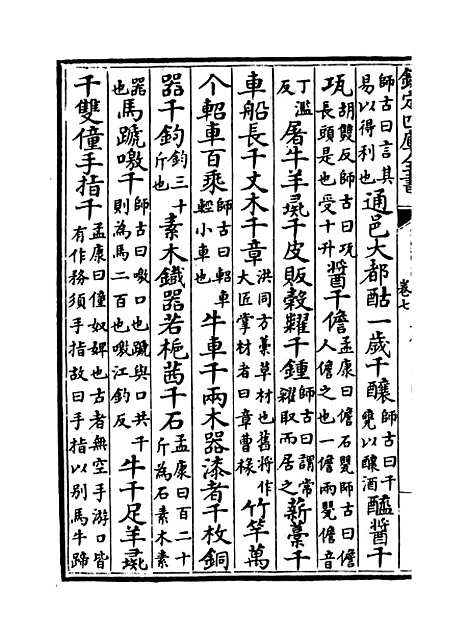 欽定四庫全書
卷七
師古曰言其易以得利也通邑大都酤一歲千釀師古曰千甕以釀酒醯醬千
瓨胡雙反師古曰瓨長頸是也受十升醬千儋孟康曰儋石甖師古曰儋人儋之也一儋兩甖儋音
丁濫反屠牛羊彘千皮販穀糶千鍾師古曰謂常糴取而居之薪藁千
車船長千丈木千章洪同方藁草材也舊將作大匠掌材者曰章曹椽竹竿萬
个軺車百乘師古曰軺車輕小車也牛車千兩木器漆者千枚銅
器千鈞鈞三十斤也素木鐵器若梔茜千石孟康曰百二十斤為石素木素
器也馬蹏噭千師古曰噭口也蹏與口共千則為馬二百也噭江釣反牛千足羊彘
千雙僮手指千孟康曰僮奴婢也古者無空手游口皆有作務須手指故曰手指以別馬牛蹄